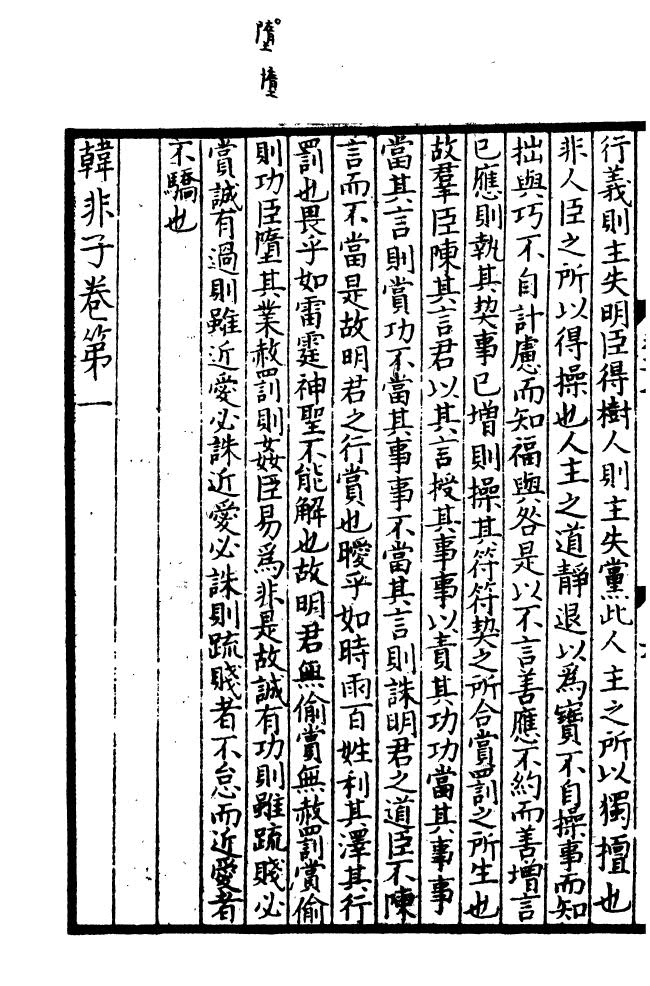 墮墮
行義則主失明臣得樹人則主失黨此人主之所以獨擅也
非人臣之所以得操也人主之道靜退以為寶不自操事而知
拙與巧不自計慮而知福與咎是以不言善應不約而善增言
已應則執其契事已增則操其符符契之所合賞罰之所生也
故羣臣陳其言君以其言授其事事以責其功功當其事事
當其言則賞功不當其事事不當其言則誅明君之道臣不陳
言而不當是故明君之行賞也曖乎如時雨百姓利其澤其行
罰也畏乎如雷霆神聖不能解也故明君無偷賞無赦罰賞偷
則功臣墮其業赦罰則姦臣易為非是故誠有功則雖疏賤必
賞誠有過則雖近愛必誅近愛必誅則疏賤者不怠而近愛者
不驕也
韓非子卷第一